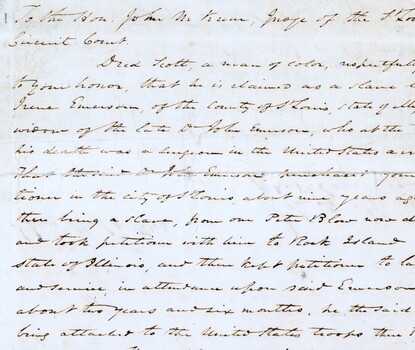 To the Hon. John M Krum, Judge of the St Lo
Circuit Court.
Dred Scott, a man of color, respectfully
to your honor, that he is claimed as a slave b
Irene Emerson, of the County of St Louis, state of M
widow of the late Dr John Emerson, who at the
his death was a surgeon in the United States arm
That the said Dr John Emerson purchased your
tioner in the city of St Louis, about nine years ago
then being a slave, from one Peter Blow now d
and took petitioner with him to Rock Island
state of Illinois, and then kept petitioner to la
and service, in attendance upon said Emerson
about two years and six months, he the said
being attached to the United States troops there